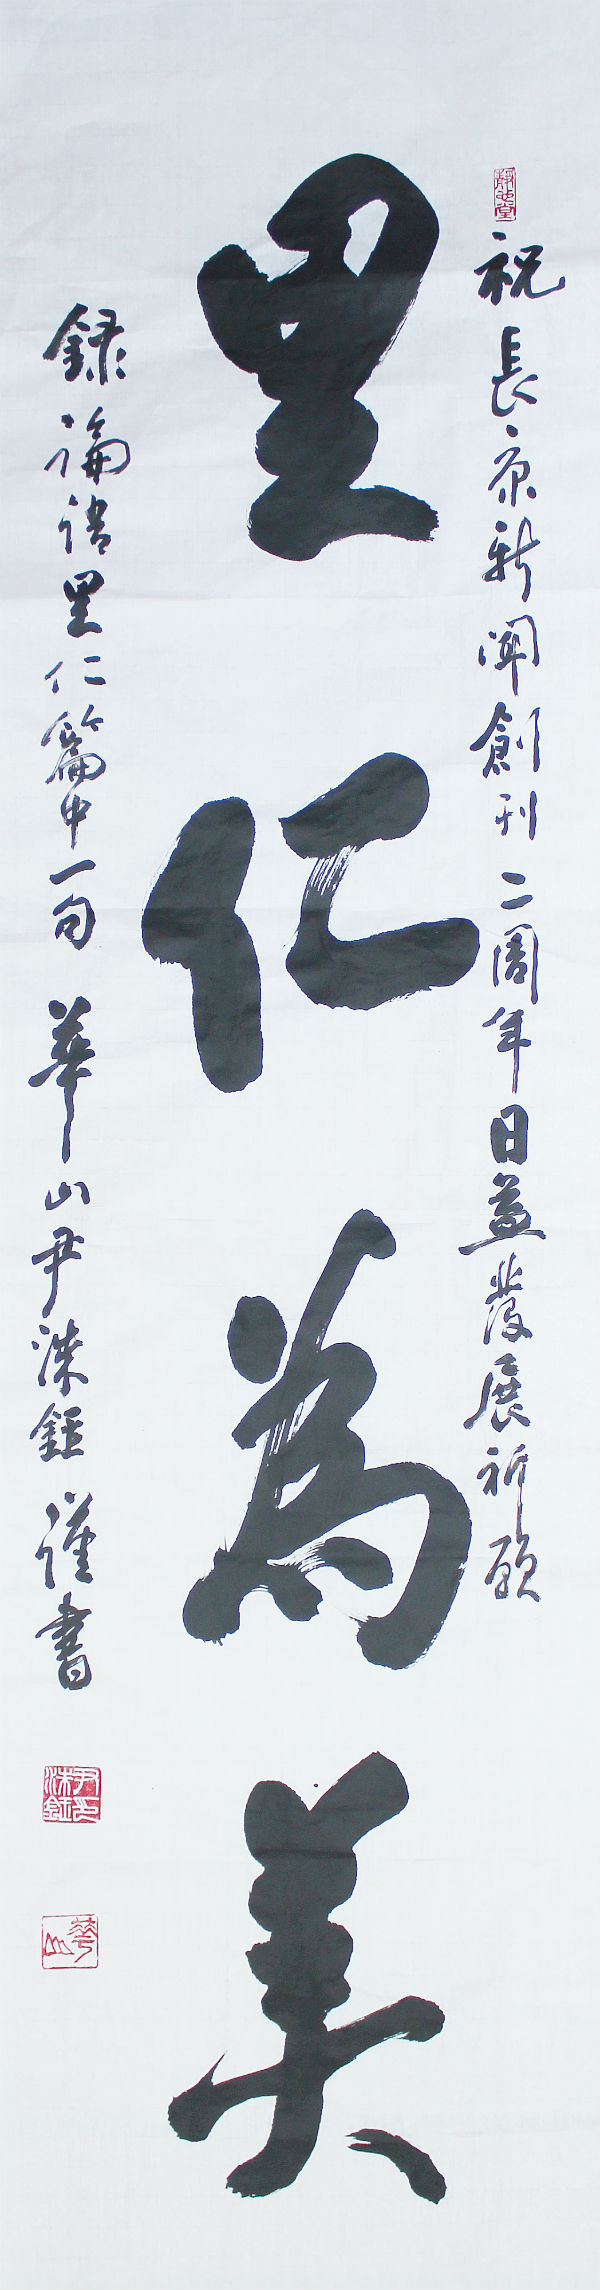 祝長京新聞創刊二周年日益發展祈願
里仁為美
錄論語里仁篇中一句 華山尹洙鉦謹書
尹洙鉦印
華山